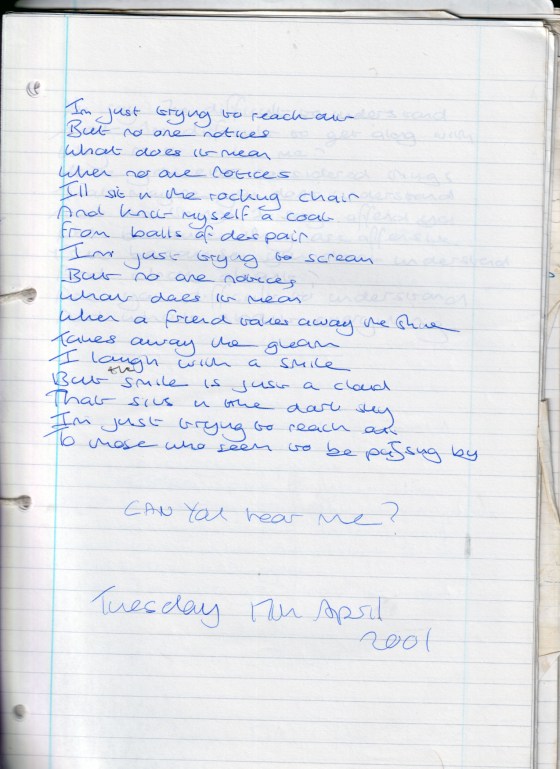 I'm just trying to reach out
But no one notices
What does it mean
When no one notices
I'll sit in the rocking chair
And knit myself a coat
From balls of despair
I'm just trying to scream
But no one notices
What does it mean
When a friend takes away the shine
Takes away the gleam
I laugh with a smile
But the smile is just a cloud
That sits in the dark sky
I'm just trying to reach out
To those who seem to be passing by
CAN You hear me?
Tuesday 17th April
2001